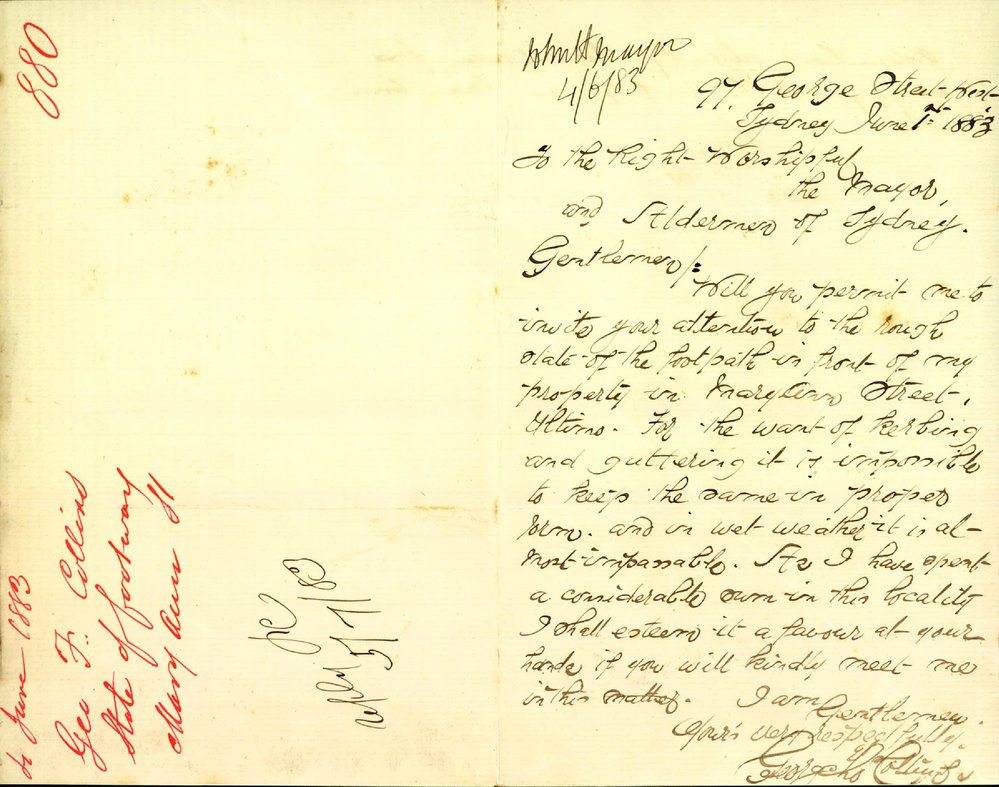 880
June 1883
Geo F. Collins
State of footway
Mary Ann St
5/7/83
Mayor
4/6/83
97, George Street West
Sydney June 1st 1883
To the Right Worshipful
the Mayor,
and Aldermen of Sydney.
Gentlemen/:
Will you permit me to
invite your attention to the rough
state of the footpath in front of my
property in Mary Ann Street,
Ultimo. For the want of kerbing
and guttering it is impossible
to keep the same in proper
form. and in wet weather it is al-
most impassable. As I have spent
a considerable sum in this locality
I shall esteem it a favour at your
hands if you will kindly meet me
in this matter. I am
Gentlemen.
Your's very respectfully.
George Collins